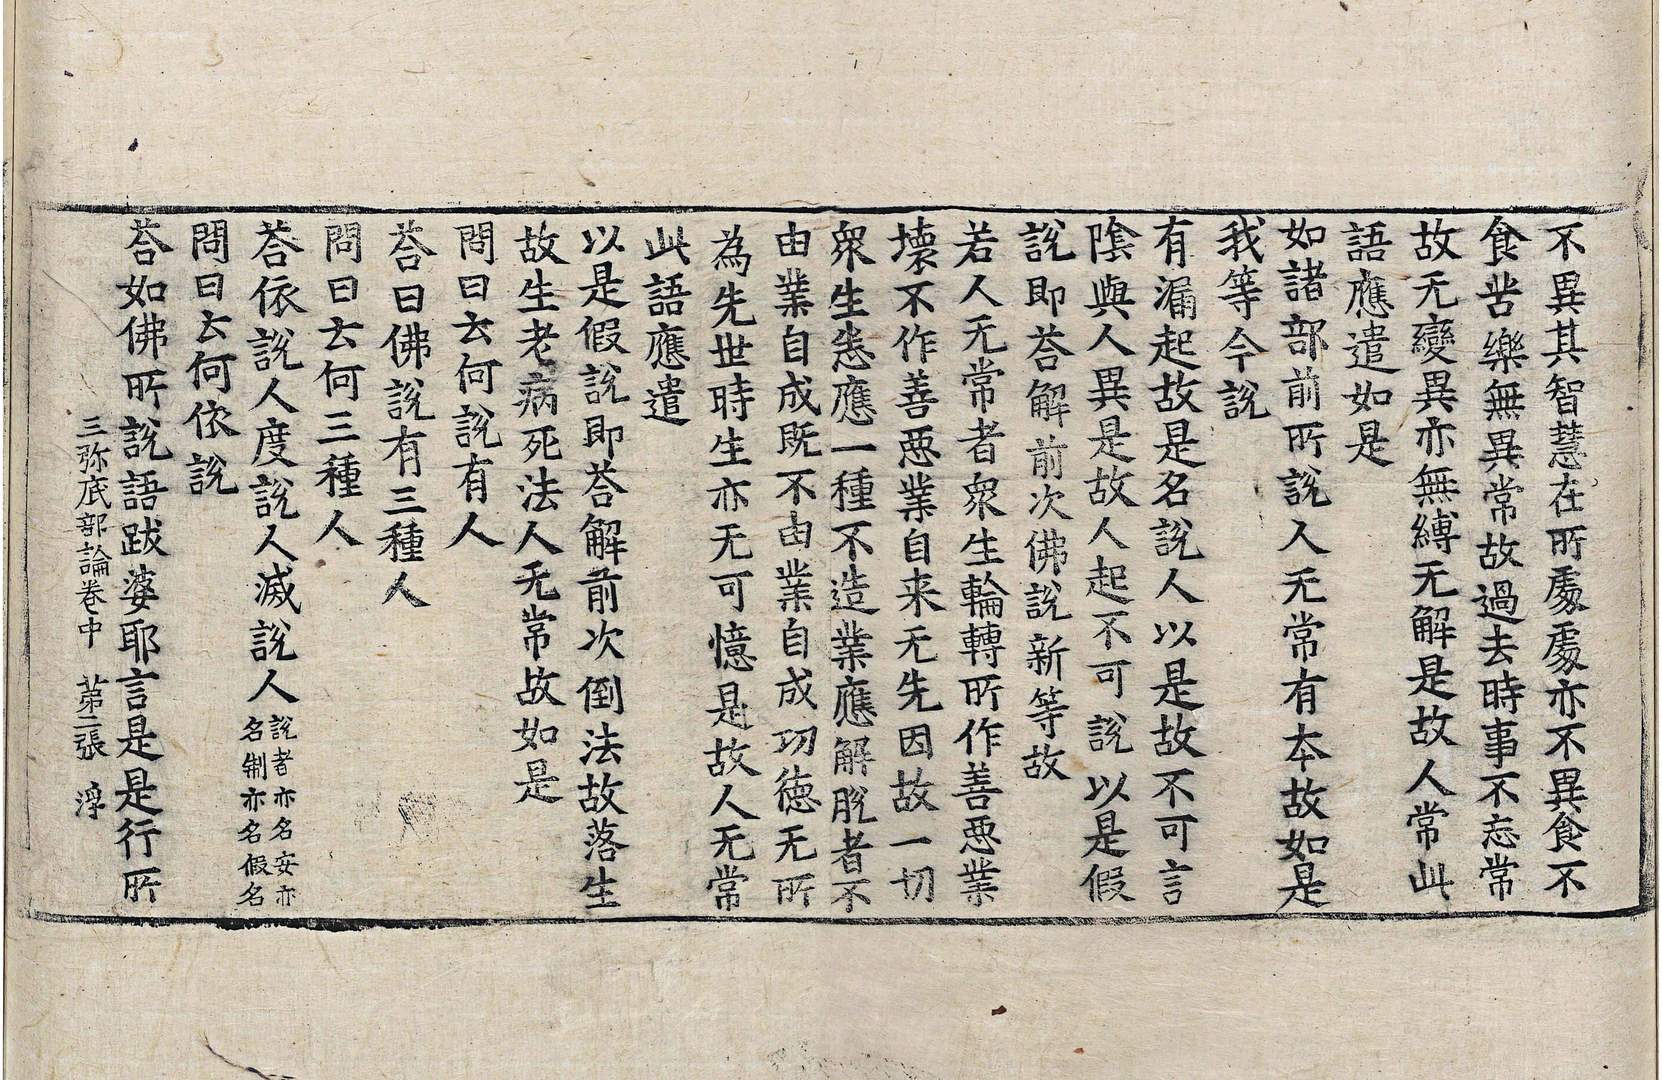 不異其智慧在所處處亦不異食不
食苦樂無異常故過去時事不忘常
故无變異亦無縛无解是故人常此
語應遣如是
如諸部前所說人无常有本故如是
我等今說
有漏起故是名說人以是故不可言
陰與人異是故人起不可說以是假
說即荅解前次佛說新等故
若人无常者衆生輪轉所作善惡業
壞不作善惡業自来无先因故一切
衆生悉應一種不造業應解脫者不
由業自成既不由業自成功徳无所
為先世時生亦无可憶是故人无常
此語應遣
以是假說即荅解前次倒法故落生
故生老病死法人无常故如是
問曰云何說有人
荅曰佛說有三種人
問曰云何三種人
荅依說人度說人滅說人說者亦名安亦
名制亦名假名
問曰云何依說
荅如佛所說語跋婆耶言是是行所
三弥底部論卷中　苐二張　淳